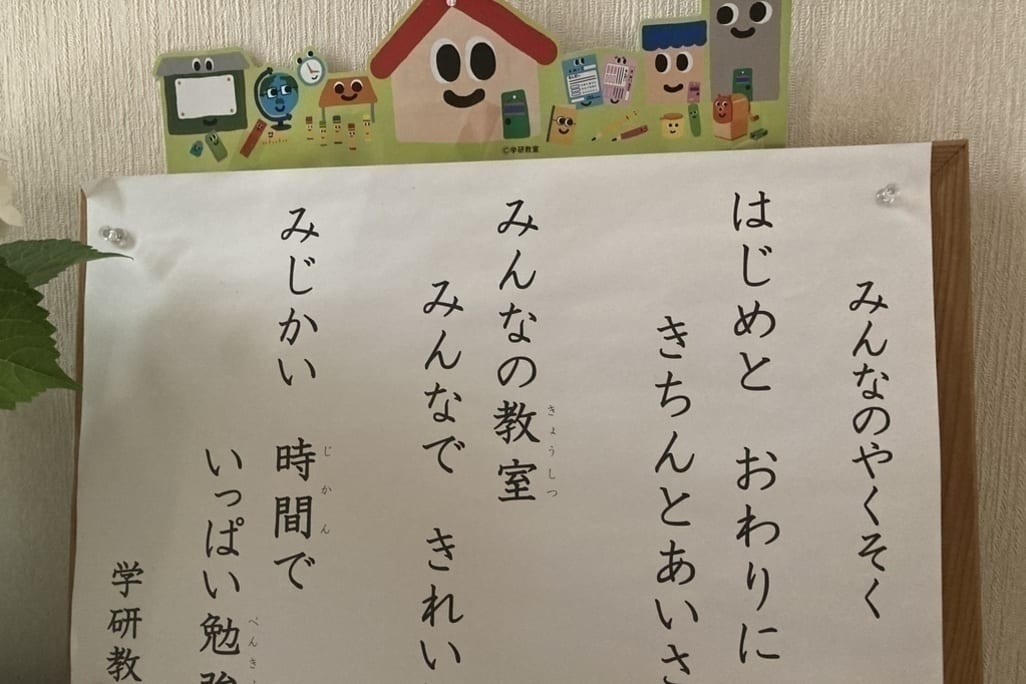 ©学研教室
みんなのやくそく
はじめと おわりに
きちんとあいさ
みんなの教室
きょうしつ
みんなで きれい
みじかい 時間で
じかん
いっぱい勉強
べんき
学研教